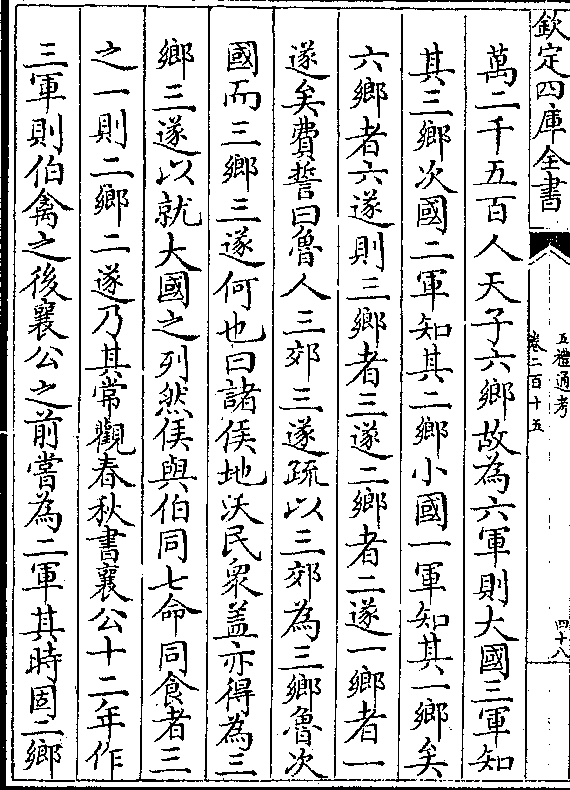 欽定四庫全書
五禮通考
卷二百十五
四十八
萬二千五百人天子六鄉故為六軍則大國三軍知
其三鄉次國二軍知其二鄉小國一軍知其一鄉矣
六鄉者六遂則三鄉者三遂二鄉者二遂一鄉者一
遂矣費誓曰魯人三郊三遂疏以三郊為三鄉魯次
國而三鄉三遂何也曰諸侯地沃民衆盖亦得為三
鄉三遂以就大國之列然侯與伯同七命同食者三
之一則二鄉二遂乃其常觀春秋書襄公十二年作
三軍則伯禽之後襄公之前嘗為二軍其時固二鄉